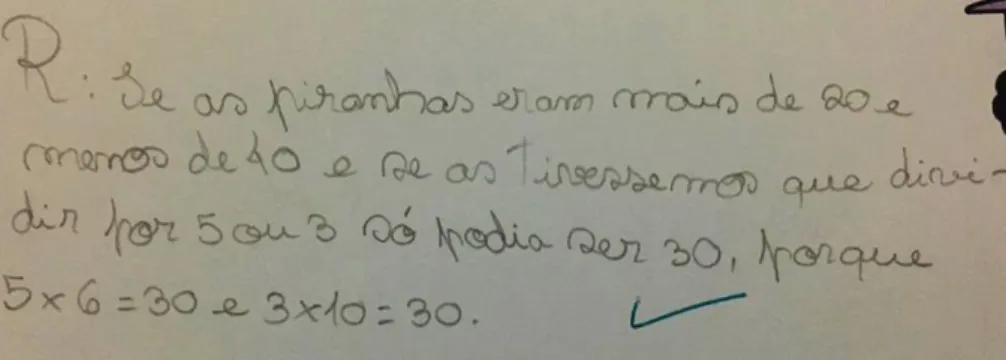 R: Se as piranhas eram mais de 20 e
menos de 40 e se as tivessemos que divi-
dir por 5 ou 3 só podia ser 30, porque
5 x 6 = 30 e 3 x 10 = 30.